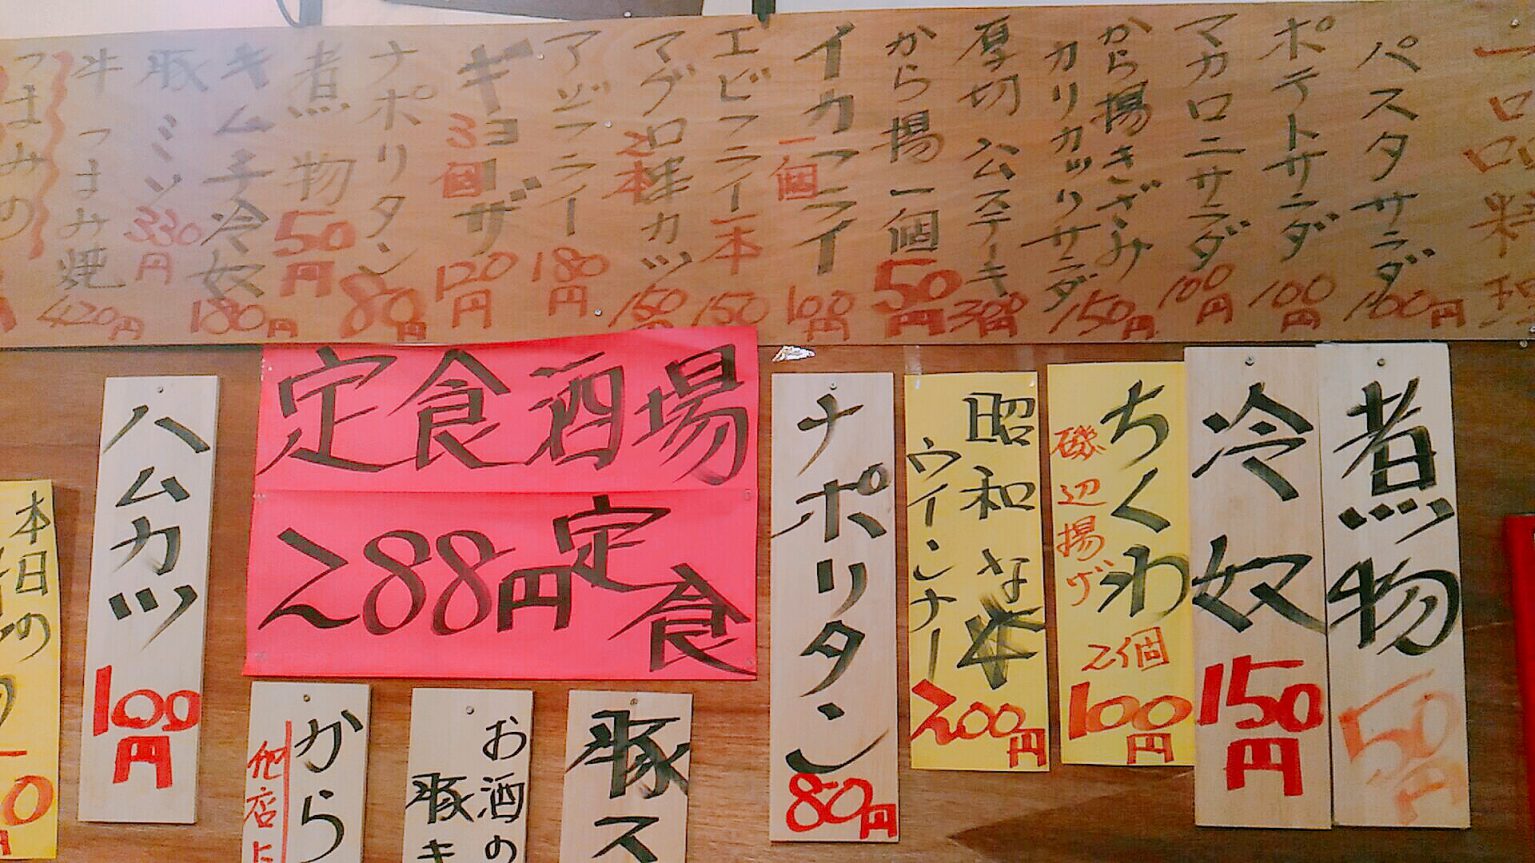 一口料理
パスタサラダ 100円
ポテトサラダ 100円
マカロニサラダ 100円
から揚きざみ
カリカッリサラダ 150円
厚切ハムステーキ 300円
から揚一個 50円
イカフライ 一個 100円
エビフライ一本 150円
マグロ串カツ 2本 150円
アジフライ 180円
ギョーザ 3個 120円
ナポリタン 80円
煮物 50円
キムチ冷奴 180円
豚ミソ 330円
牛つまみ焼 420円
つまみの
煮物 50円
冷奴 150円
ちくわ
磯辺揚げ
2個
100円
昭和な
ウインナー
200円
ナポリタン 80円
定食酒場
288円定食
ハムカツ 100円
豚ス
お酒の
豚キ
から
他店に
本日の